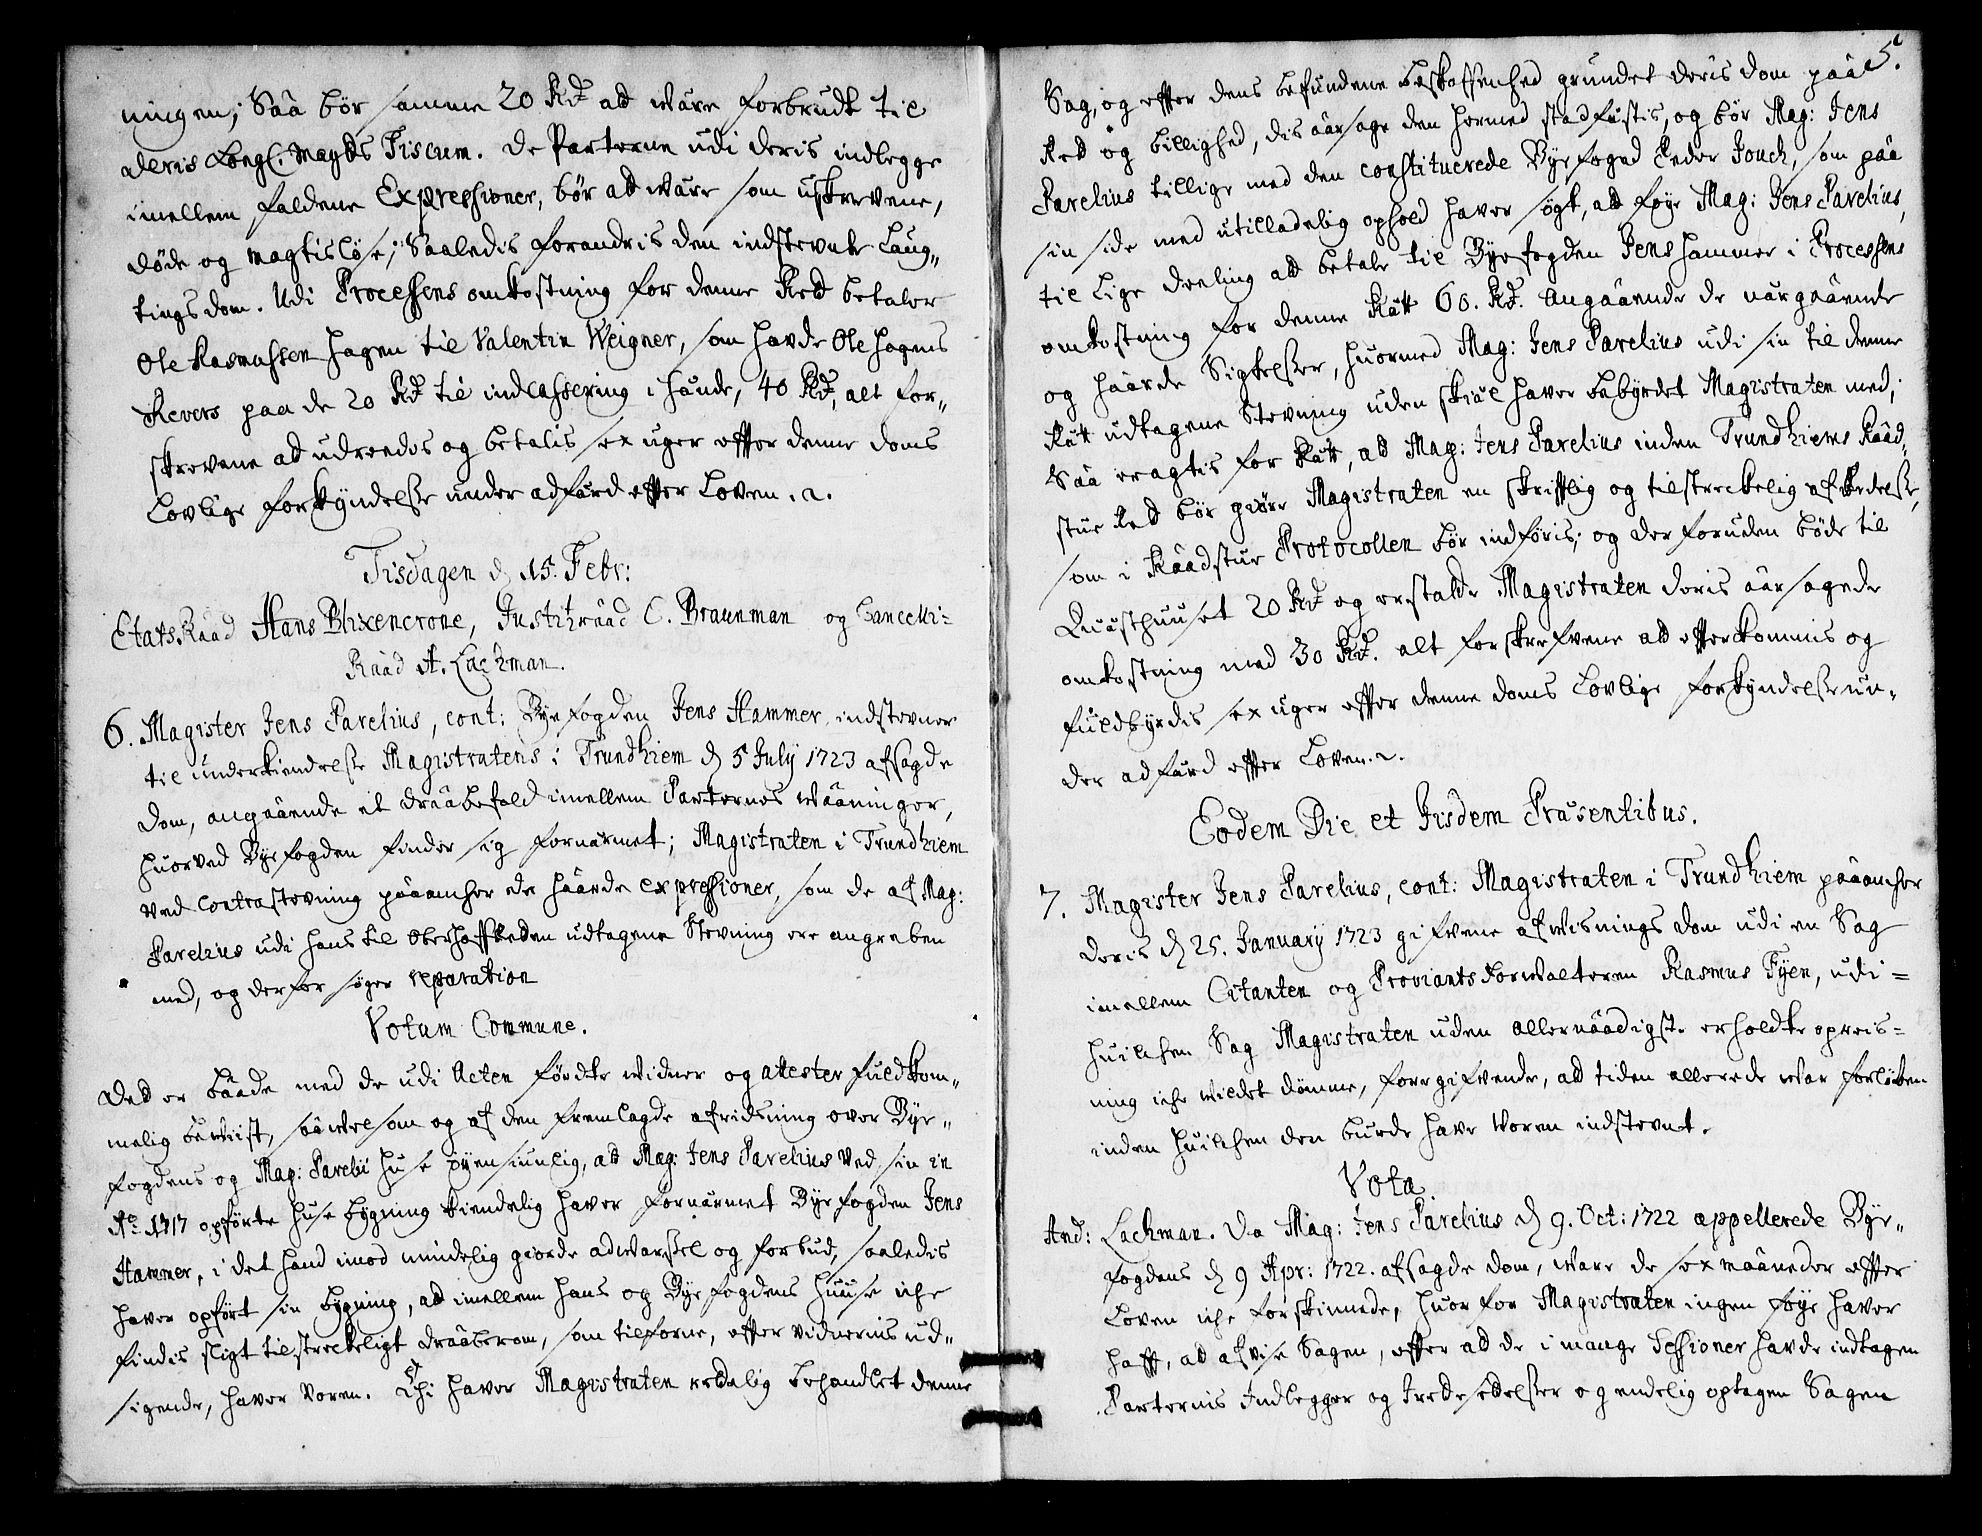 ningen; Saa bør samme 20 Rd. ad være forbrudt til
deris Kongl. Mayts Fiscum. De Parterne udi deris indlegge
imellem faldene Expressioner, bør ad være som uskrevene,
døde og magtisløse; Saaledis forandris den indstevnte Laug„
tings dom. Udi Processens omkostning for denne Ret betaler
Ole Rasmussen Hagen til Valentin Weigner, som havde Ole Hagens
Revers paa de 20 Rd. til indcassering i hænde, 40 Rd., alt for„
skrevene ad udreedes og betalis sex uger effter denne doms
Lovlige forkyndelse under adfærd effter Loven.
Tisdagen d. 15. Febr:
EtatsRaad Hans Blixencrone, Justitzraad C. Braunman og Cancelli=
Raad A. Lachman.
6. Magister Jens Parelius, cont: Byefogden Jens Hammer, indstevner
til underkiendelse Magistratens i Trundhiem d. 5 July 1723 afsagde
Dom, angaaende et draabefald imellem Parternes Vaaninger,
huorved Byefogden finder sig fornærmet; Magistraten i Trundhiem
ved Contrastevning paaanker de haarde expressioner, som de af Mag:
Parelius udi hans til Oberhoffretten udtagene Stevning ere angreben
med, og derfor søger reparation
Votum Commune.
Det er baade med de udi Acten førdte vidner og attester fuldkom„
melig beviist, saavelsom og af den fremlagde afridsning over Bye„
fogdens og Mag: Parelii Huse øyensiunlig, at Mag: Jens Parelius ved sin in
Ao. 1717 opførte Huse bygning kiendelig haver fornærmet Byefogden Jens
Hammer, i det hand imod mindelig giorde advarsel og forbud, saaledis
haver opført sin bygning, at imellem hans og Byefogdens Huuse iche
findis sligt tilstreckeligt draaberom, som tilforne, effter vidnernis ud„
sigende, haver været. Thi haver Magistraten rettelig behandlet denne
5.
Sag, og effter dens befundene beskaffenhed grundet deris dom paa
Ret og billighed, dis aarsage den hermed stadfæstis, og bør Mag: Jens
Parelius tillige med den constituerede Byefoged Peder Jouch, som paa
sin side med utilladelig ophold haver søgt, at føye Mag: Jens Parelius,
til Lige deeling at betale til Byefogden Jens Hammer i Processens
omkostning for denne Ræt 60. Rd. Angaaende de nærgaaende
og haarde Sigtelser, huormed Mag: Jens Parelius udi sin til denne
Ræt udtagene Stevning uden skiæl haver bebyrdet Magistraten med;
Saa eragtis for Ræt, at Mag: Jens Parelius inden Trundhiems Raad„
stue Ret bør giøre Magistraten en skrifftlig og tilstreckelig afbedelse,
som i Raadstue Protocollen bør indføris; og der foruden bøde til
Quæsthuuset 20 Rd. og erstatte Magistraten deris aarsagede
omkostning med 30 Rd. alt forskrefvene at effterkommis og
fuldbyrdis sex uger effter denne doms Lovlige forkyndelse un„
der adfærd effter Loven.
Eodem Die et Iisdem Præsentibus.
7. Magister Jens Parelius, cont: Magistraten i Trundhiem paaanker
deris d. 25. January 1723 gifvene afvisnings dom udi en Sag
imellem Citanten og Proviantsforvalteren Rasmus Fyen, udi=
huilchen Sag Magistraten uden allernaadigste erholdte opreis=
ning iche vildet dømme, foregifvende, at tiden allerede var forløben
inden huilchen den burde have været indstevnt.
Vota
And: Lachman. Da Mag: Jens Parelius d. 9. Oct: 1722 appellerede Bye„
fogdens d. 9 Apr: 1722. afsagde dom, vare de sex maaneder effter
Loven iche forskinnede, huorfor Magistraten ingen føye haver
hafft, at afvise Sagen, effter at de i mange Sessioner havde indtagen
Parternis Indlegger og Irettesettelser og endelig optagen Sagen